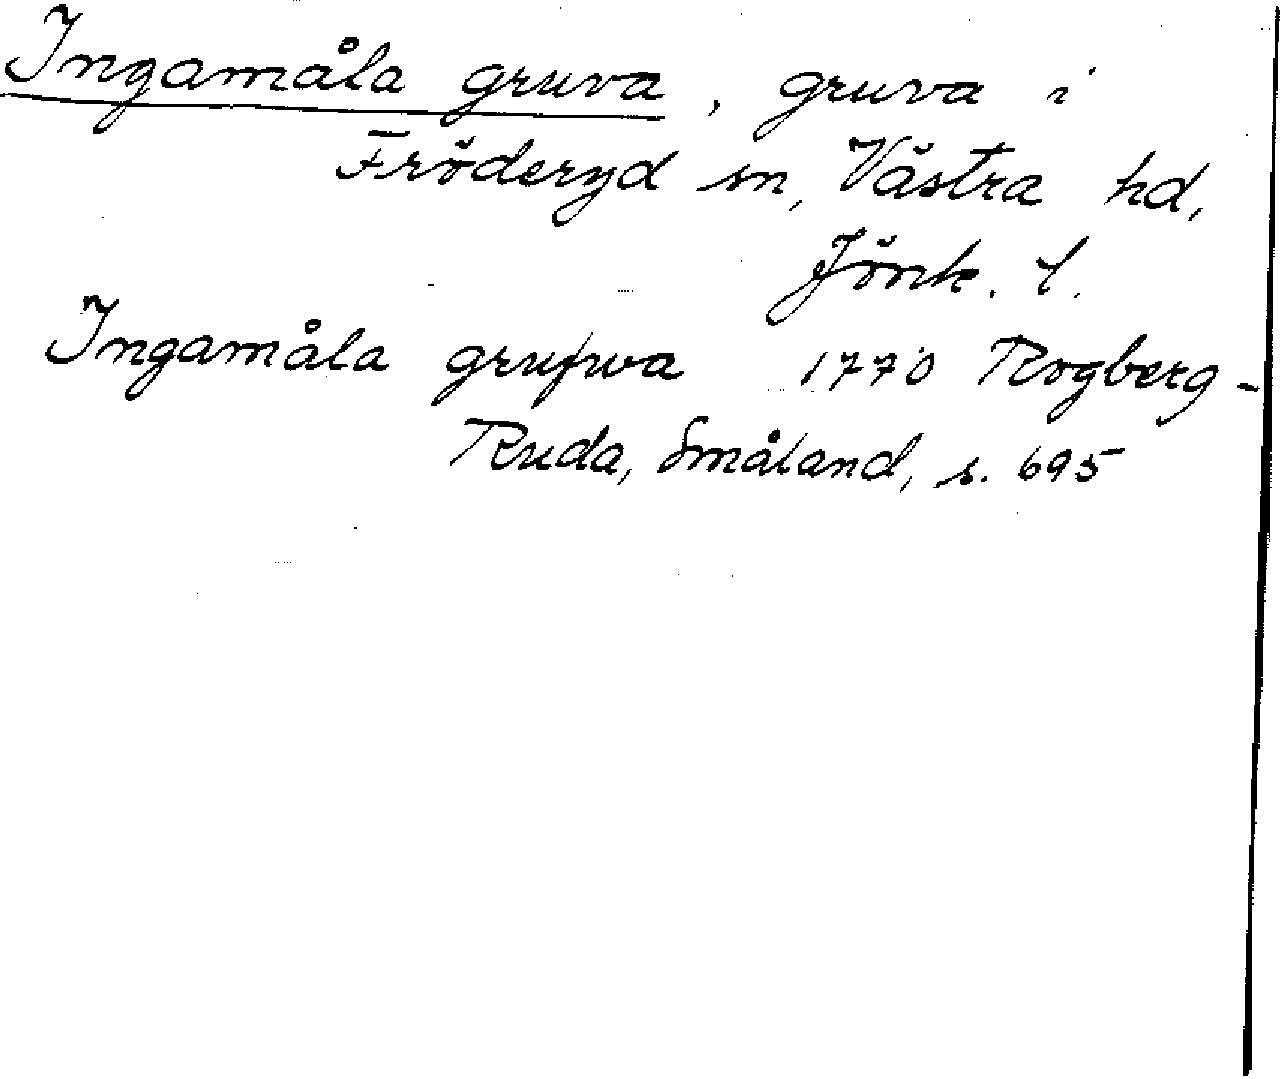 Ingamåla gruva, gruva i
Fröderyd sn, Västra hd,
Jönk. l.
Ingamåla grufwa 1770 Rogberg-
Ruda, Småland, s. 695